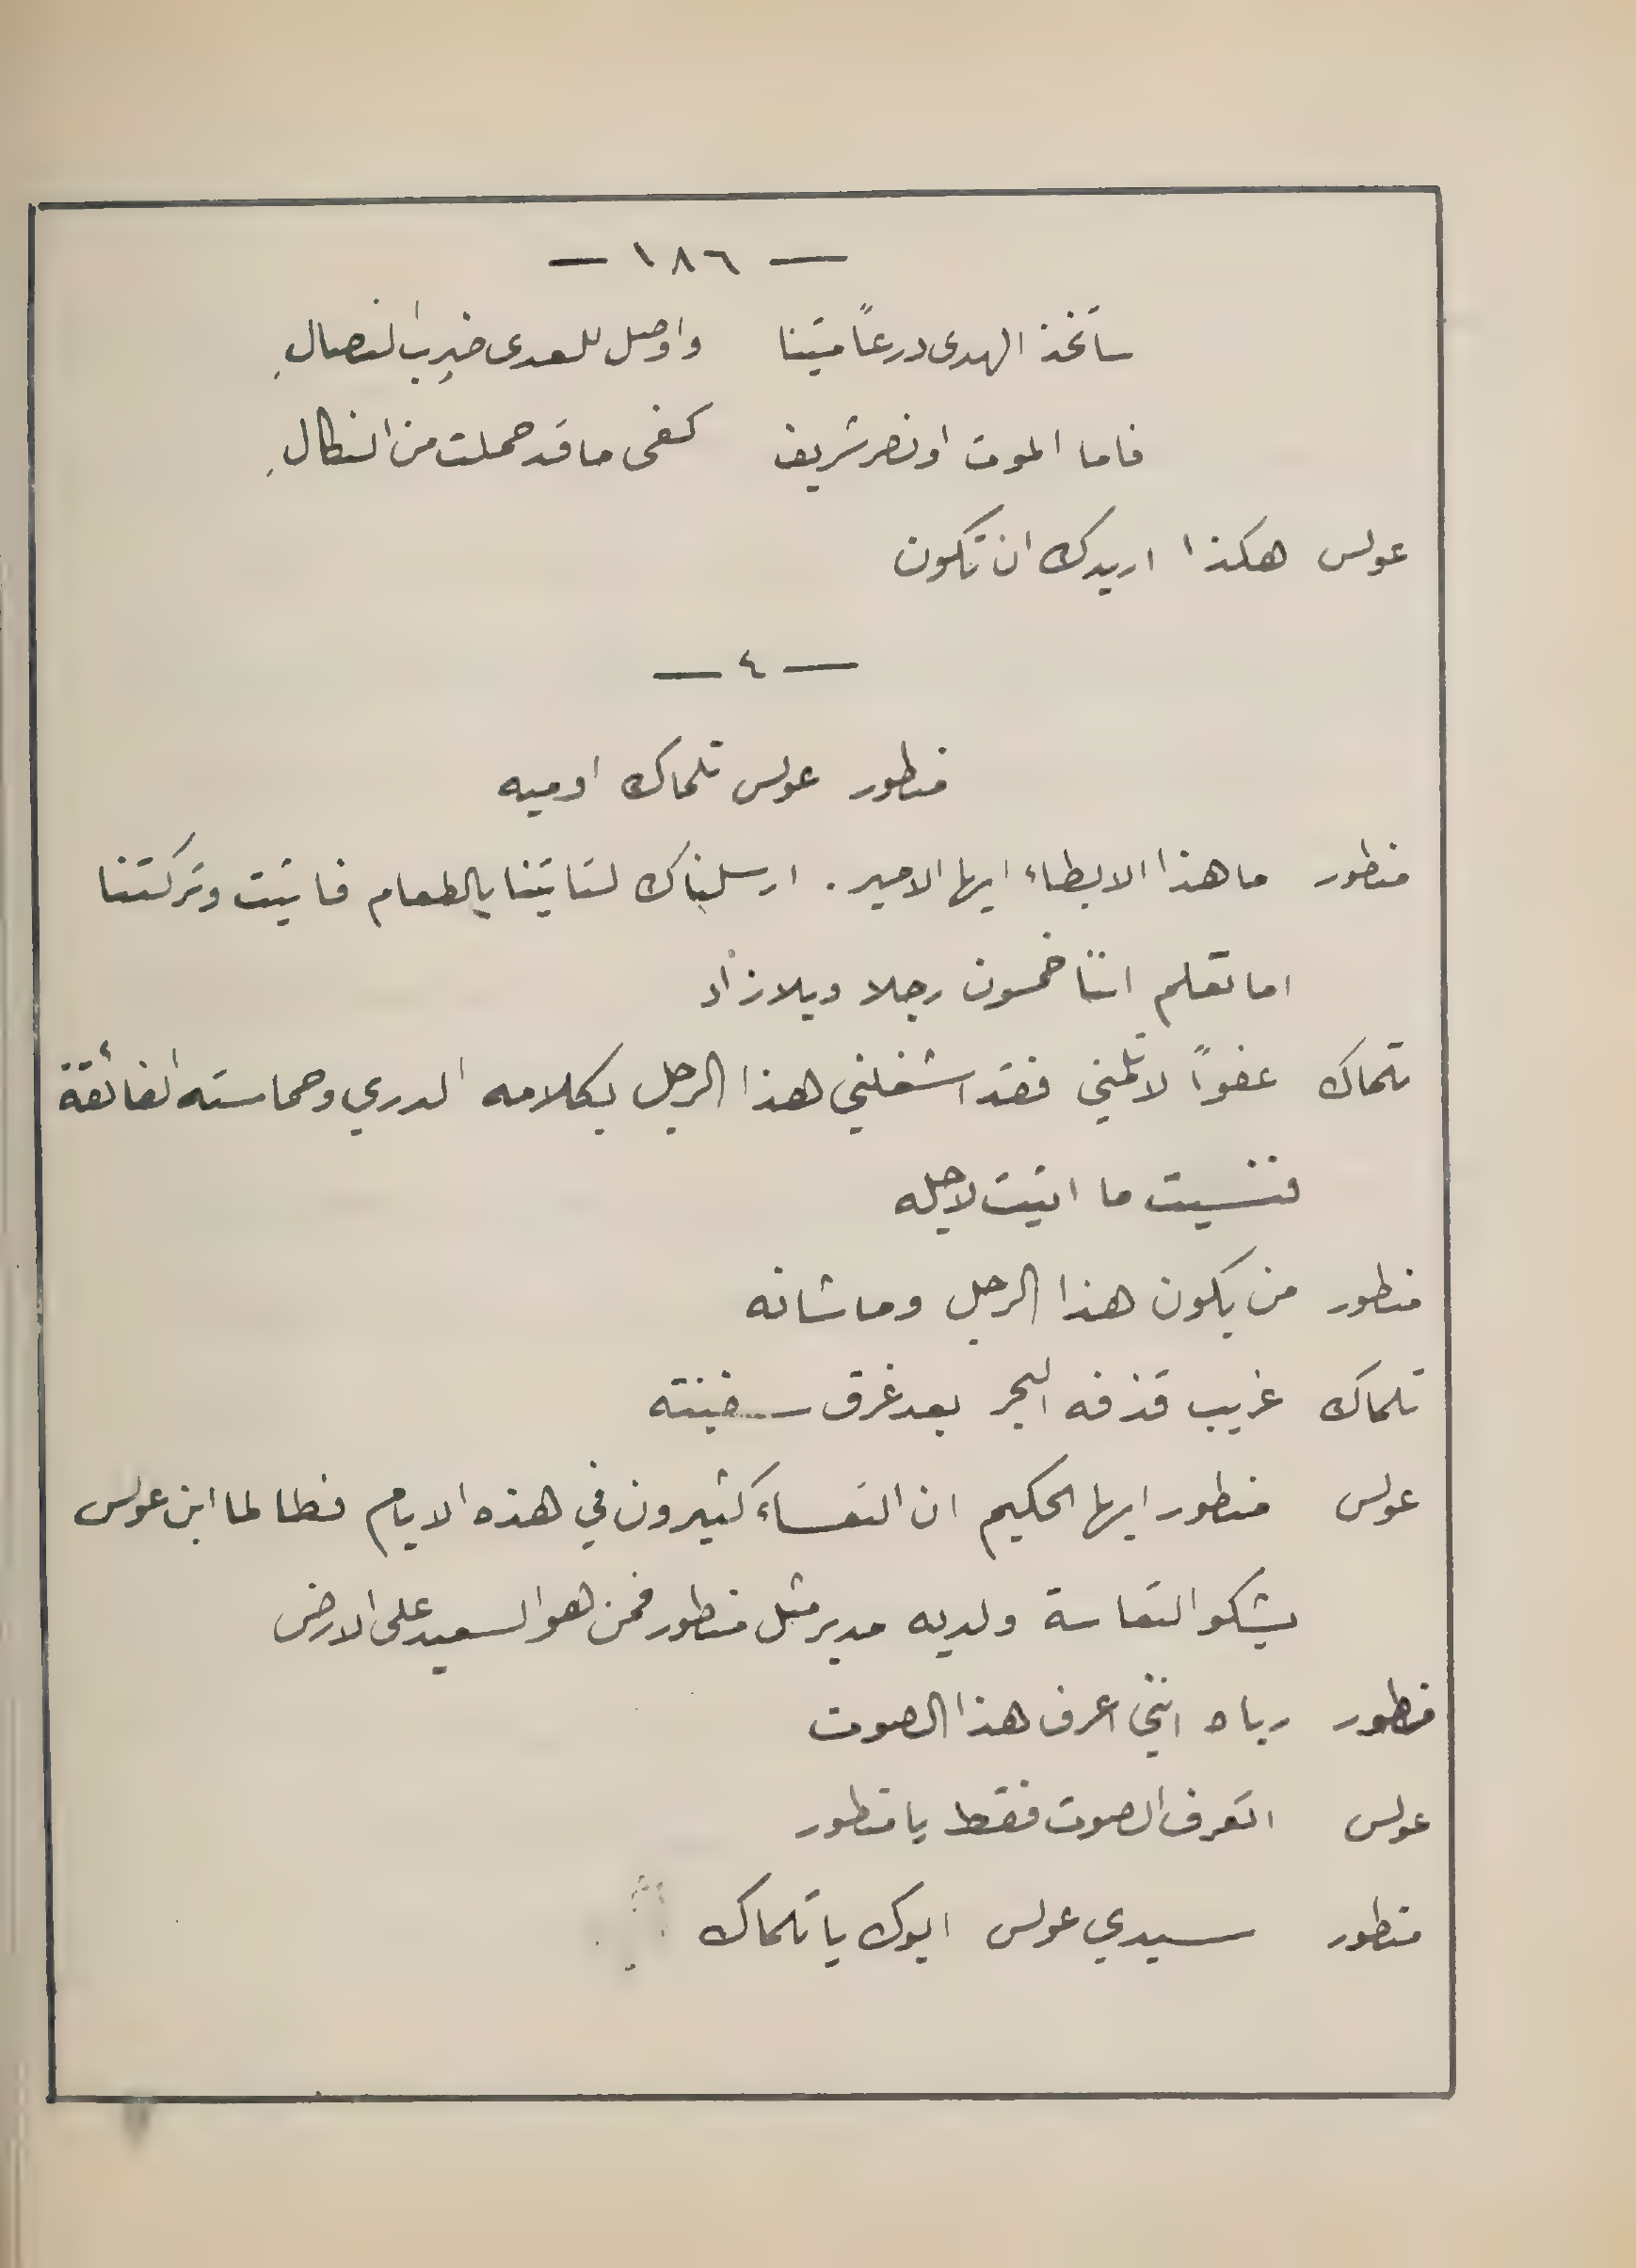 — ١٨٦ —
ساتخذ الهدى درعاً متينا واوصل للعدى ضرب النصالِ
فاما الموت او نصر شريف كفى ما قد حملت من النكالِ
عولس هكذا اريدك ان تكون
— ٤ —
منطور عولس تلماك اوميه
منطور ما هذا الابطاء ايها الامير . ارسلناك لتاتينا بالطعام فاتيت وتركتنا
اما تعلم اننا خمسون رجلا وبلا زاد
تلماك عفواً لا تلمني فقد اشغلني هذا الرجل بكلامه الدري وحماسته الفائقة
فنسيت ما اتيت لاجله
منطور من يكون هذا الرجل وما شانه
تلماك غريب قذفه البحر بعد غرق سفينته
عولس منطور ايها الحكيم ان التعساء كثيرون في هذه الايام فطالما ابن عولس
يشكو التعاسة ولديه مدير مثل منطور فمن هو السعيد على الارض
منطور رباه انني اعرف هذا الصوت
عولس اتعرف الصوت فقط يا منطور
منطور سيدي عولس ابوك يا تلماك